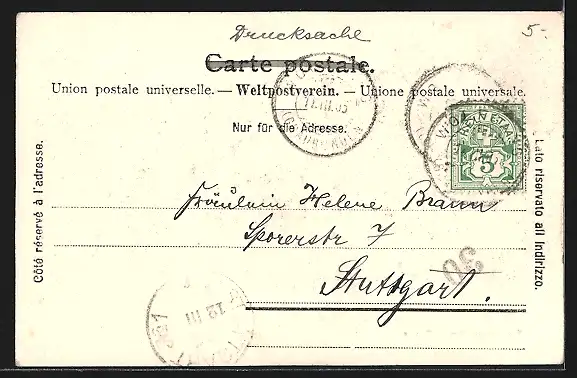 Drucksache
5-
Carte postale.
Union postale universelle. — Weltpostverein. — Unione postale universale.
Nur für die Adresse.
Côté réservé à l'adresse.
Lato riservato all'indirizzo.
5
Fräulein Helene Braun
Sporerstr 7
Stuttgart.
30
12 III